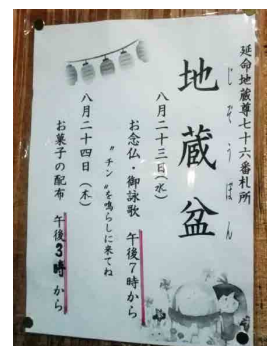 延命地蔵尊七十六番札所
じぞうぼん
地蔵盆
八月二十三日(水)
お念仏・御詠歌 午後7時から
"チン"を鳴らしに来てね
八月二十四日(木)
お菓子の配布 午後3時から